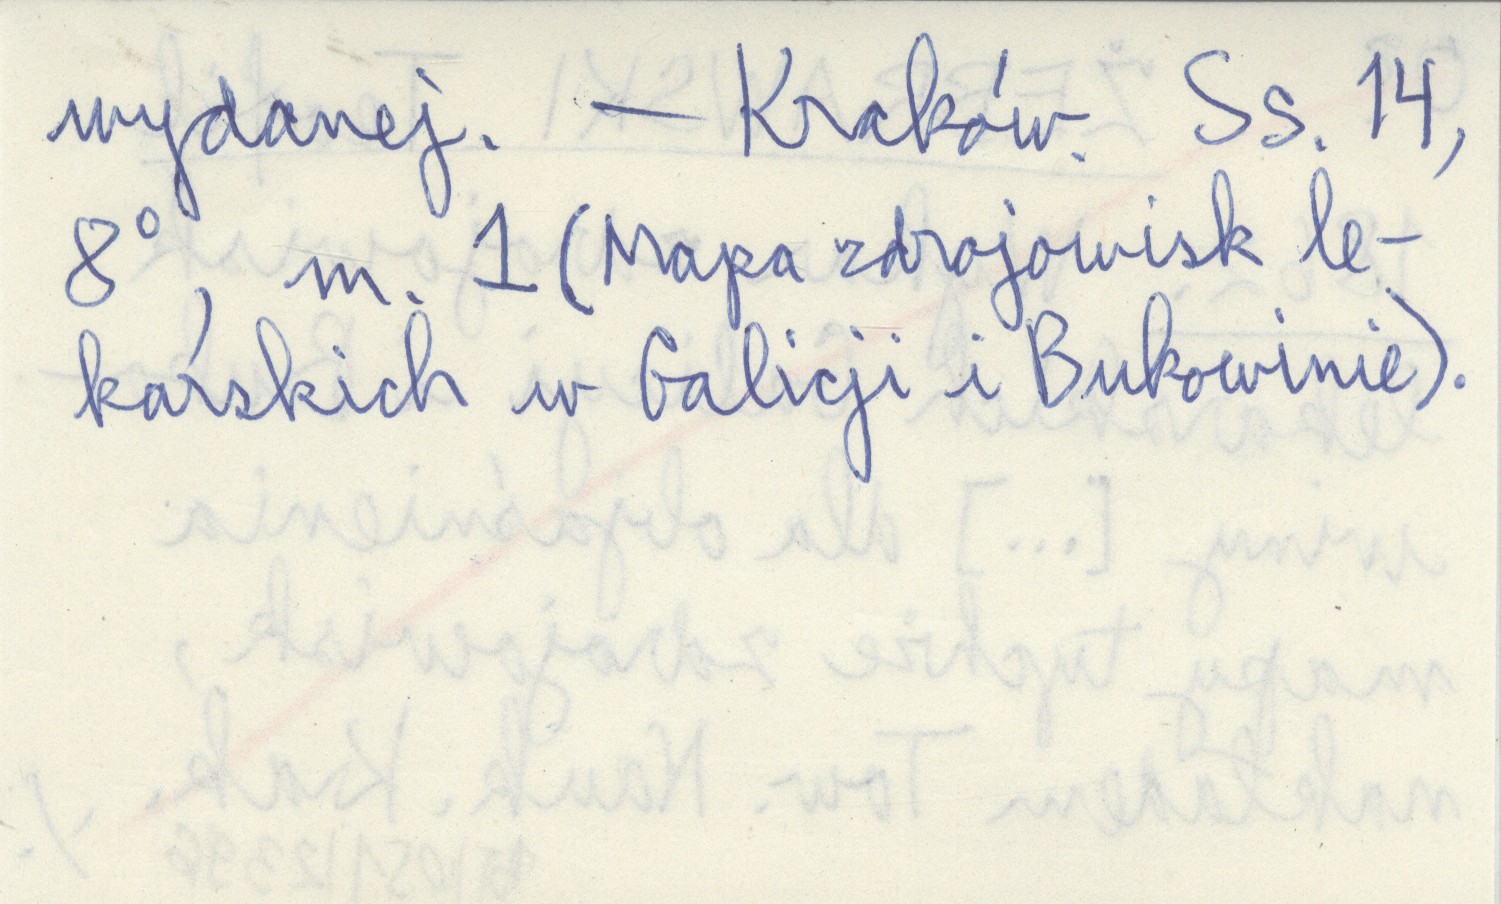 wydanej. — Kraków. Ss. 14,
8°, m. 1 (Mapa zdrojowisk le-
karskich w Galicji i Bukowinie).